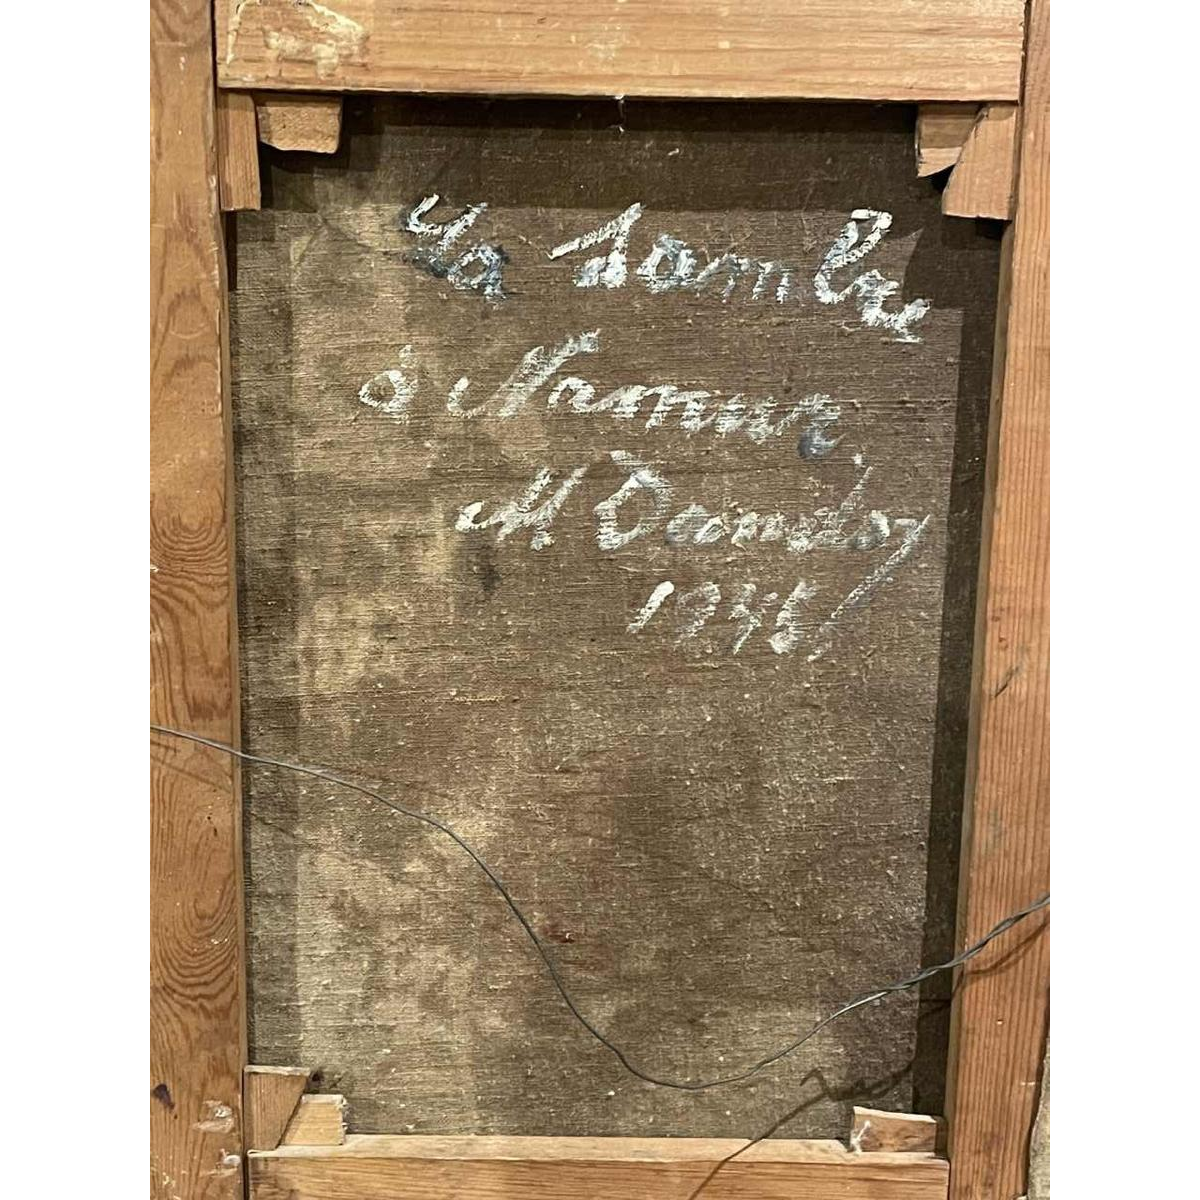 La Sambre
à Namur,
M Damsloy
1945